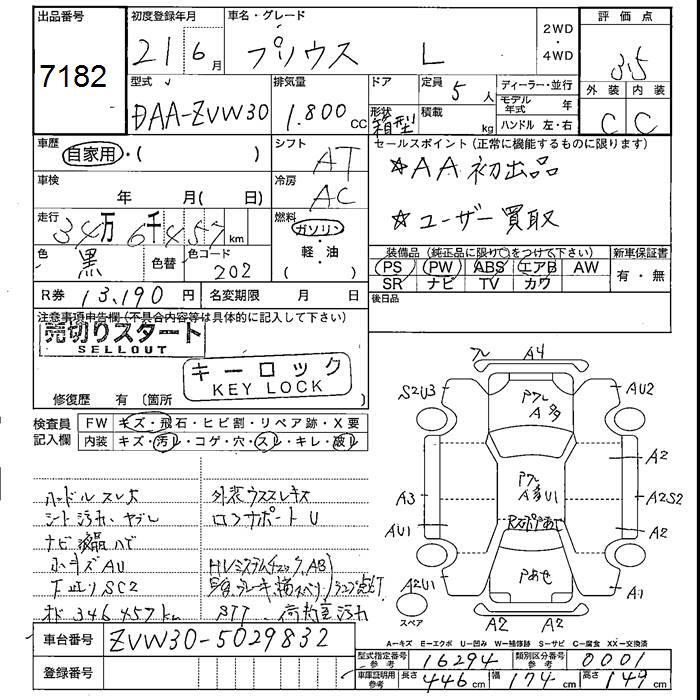 出品番号
7182
初度登録年月
21 6月
車名・グレード
プリウス L
2WD
・
4WD
評価点
3.5
外装 内装
C C
型式
DAA-ZVW30
排気量
1.800cc
ドア
形状
箱型
定員
5人
積載
kg
ディーラー・並行
モデル年式 年
ハンドル 左・右
車歴
自家用・( )
シフト
AT
セールスポイント(正常に機能するものに限ります)
☆AA初出品
☆ユーザー買取
車検
年 月( 日)
冷房
AC
走行
34万6千457km
燃料
ガソリン
・
軽・油
色
黒
色替
色コード
202
装備品(純正品に限り○をつけて下さい)
PS PW ABS エアB AW
SR ナビ TV カワ
新車保証書
有・無
R券 13,190円
名変期限 月 日
後日品
注意事項申告欄(不具合内容等は具体的に記入して下さい)
売切りスタート
SELLOUT
キーロック
KEY LOCK
修復歴 有(箇所
検査員記入欄
FW キズ・飛石・ヒビ割・リペア跡・X要
内装 キズ・汚レ・コゲ・穴・スレ・キレ・破レ
ハンドルスレ大
外装ウススレキズ
シート汚れ、ヤブレ
ロアサポートU
ナビ液晶ハゲ
小キズAU
HVシステムチェック,AB
下廻りSC2
ランプ点灯
オド346457km
荷物室汚れ
フレ A4
S2U3
AU2
A2
A3
A2S2
AU1
A2
A2U1
A1
A2 A2
スペア
A=キズ E=エクボ U=凹み W=補修跡 S=サビ C=腐食 XX=交換済
車台番号 ZVW30-5029832
登録番号
型式指定番号参考 16294
類別区分番号参考 0001
車庫証明用参考 長さ 446cm 幅 174cm 高さ 149cm